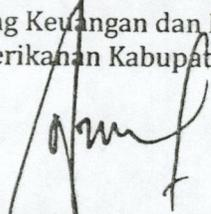 ng Keuangan dan
erikanan Kabupat